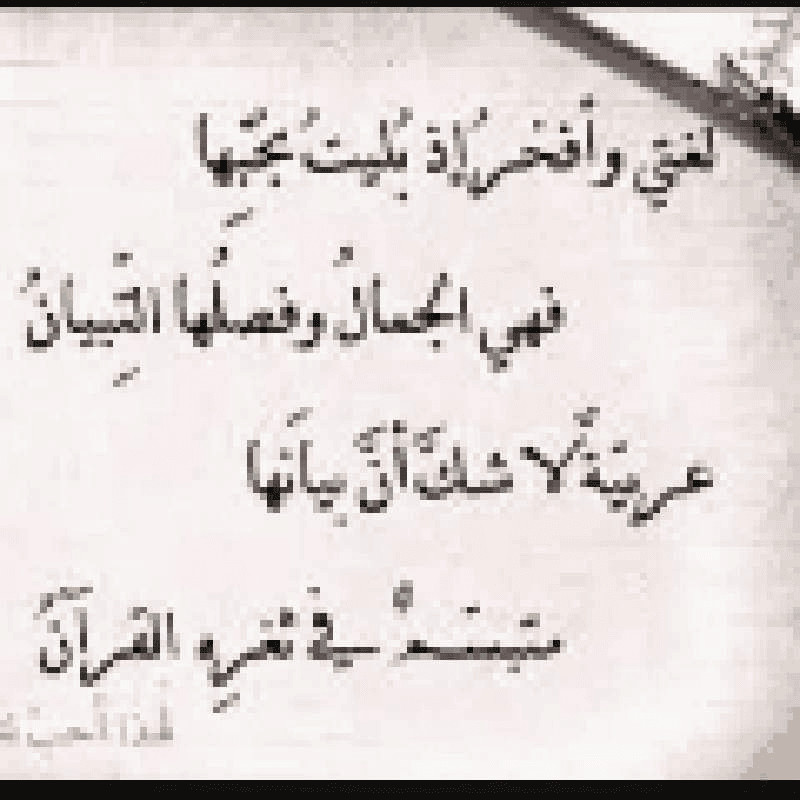 لغتي وأفخرُ إذ بُليتُ بحُبِّها
فهي الجمالُ وفصلُها التِّبيانُ
عربيّةٌ لا شكَّ أنَّ بيانَها
متبسّمٌ في ثغرِهِ القرآنَ
لهذا أحبّ